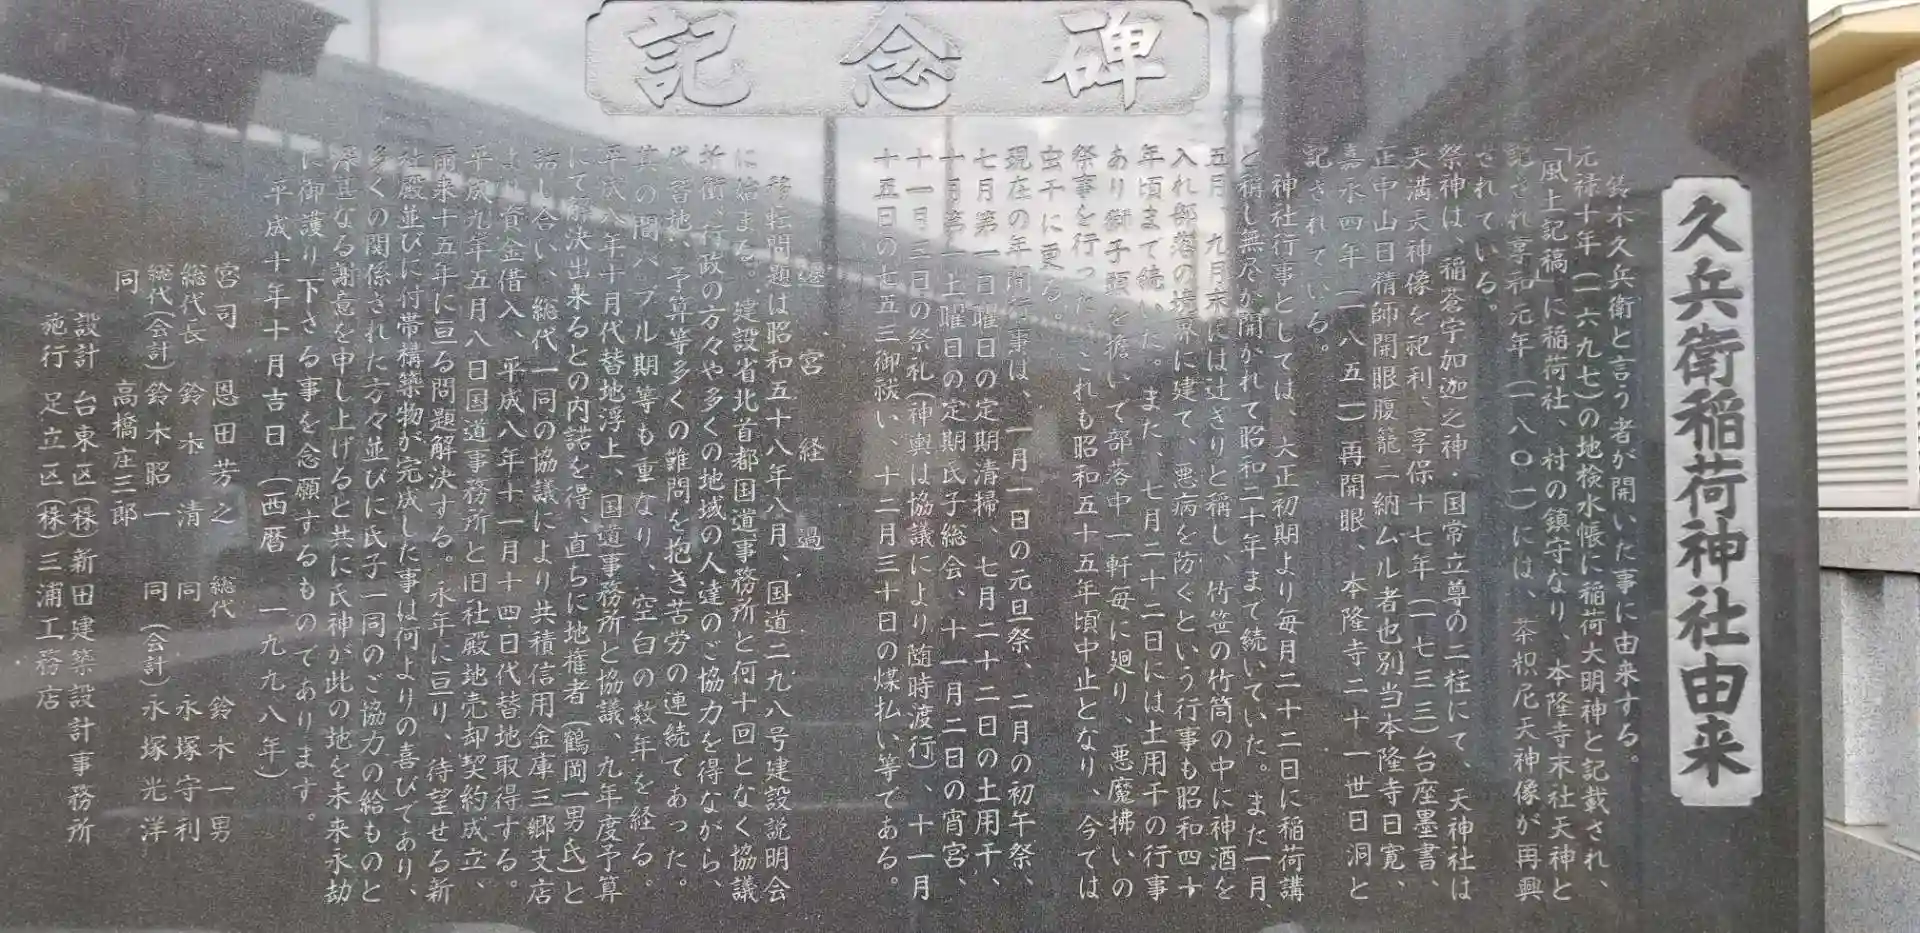 記念碑
久兵衛稲荷神社由来
鈴木久兵衛と言う者が開いた事に由来する。
元禄十年(一六九七)の地検水帳に稲荷大明神と記載され、
「風土記稿」に稲荷社、村の鎮守なり、本隆寺末社天神と
記され享和元年(一八〇一)には、茶枳尼天神像が再興
されている。
祭神は、稲蒼宇加迦之神・国常立尊の二柱にて、天神社は
天満天神像を祀利、享保十七年(一七三三)台座墨書、
正中山日精師開眼腹籠ニ納ムル者也別当本隆寺日寛、
嘉永四年(一八五一)再開眼、本隆寺二十一世日洞と
記されている。
神社行事としては、大正初期より毎月二十二日に稲荷講
と称し無尽が開かれて昭和二十年まて続いていた。また一月、
五月、九月末には辻ぎりと称し、竹笹の竹筒の中に神酒を
入れ部落の境界に建て、悪病を防ぐという行事も昭和四十
年頃まて続いた。また、七月二十二日には土用干の行事
あり獅子頭を担いで部落中一軒毎に廻り、悪魔拂いの
祭事を行った、これも昭和五十五年頃中止となり、今では
虫干に更る。
現在の年間行事は、一月一日の元旦祭、二月の初午祭、
七月第一日曜日の定期清掃、七月二十二日の土用干、
十月第一土曜日の定期氏子総会、十一月二日の宵宮、
十一月三日の祭礼(神輿は協議により随時渡行)、十一月
十五日の七五三御祓い、十二月三十日の煤払い等である。
遷宮経過
移転問題は昭和五十八年八月、国道二九八号建設説明会
に始まる。建設省北首都国道事務所と何十回となく協議
折衝、行政の方々や多くの地域の人達のご協力を得ながら、
代替地、予算等多くの難問を抱き苦労の連続てあった。
其の間バブル期等も重なり、空白の数年を経る。
平成八年十月代替地浮上、国道事務所と協議、九年度予算
にて解決出来るとの内諾を得、直ちに地権者(鶴岡一男氏)と
話し合い、総代一同の協議により共積信用金庫三郷支店
より資金借入、平成八年十一月十四日代替地取得する。
平成九年五月八日国道事務所と旧社殿地売却契約成立、
爾来十五年に亘る問題解決する。永年に亘り、待望せる新
社殿並びに付帯構築物が完成した事は何よりの喜びであり、
多くの関係された方々並びに氏子一同のご協力の給ものと
深甚なる謝意を申し上げると共に氏神が此の地を未来永劫
に御護り下さる事を念願するものであります。
平成十年十月吉日(西暦一九九八年)
宮司 恩田芳之 総代 鈴木一男
総代長 鈴木清 同 永塚守利
総代(会計)鈴木昭一 同(会計)永塚光洋
同 高橋庄三郎
設計 台東区(株)新田建築設計事務所
施行 足立区(株)三浦工務店